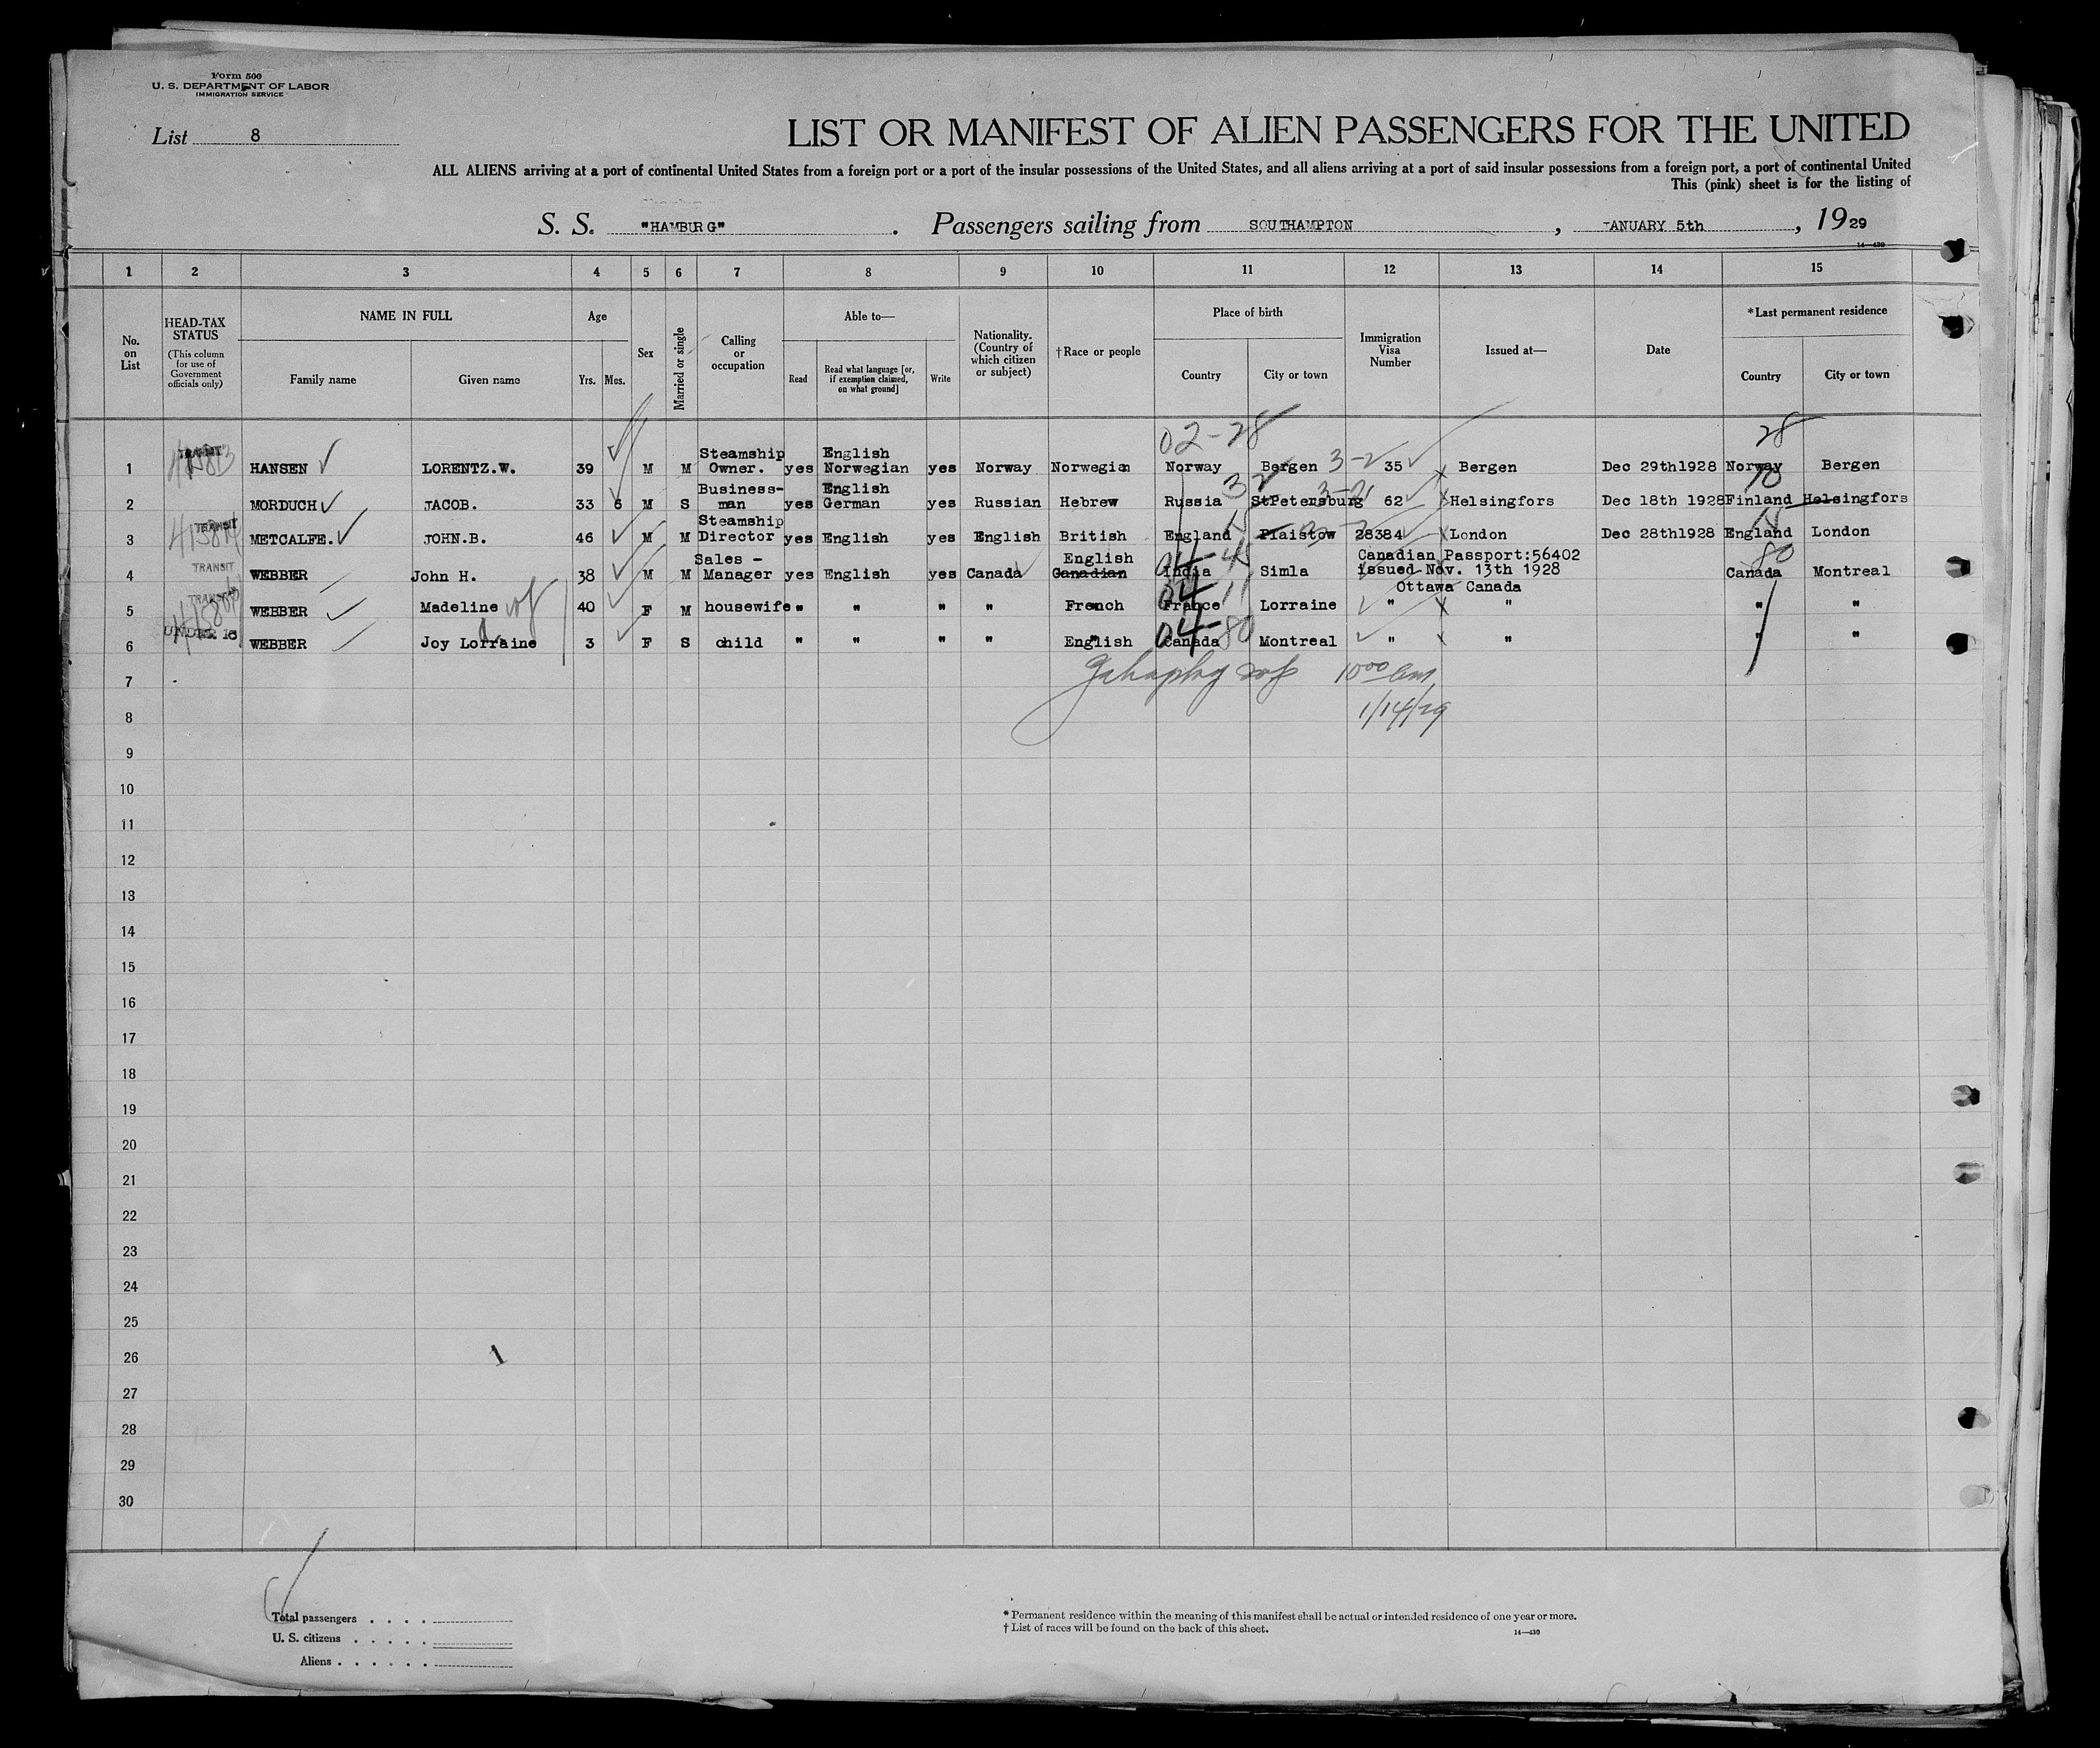 Form 500
U. S. DEPARTMENT OF LABOR
IMMIGRATION SERVICE
List 8
LIST OR MANIFEST OF ALIEN PASSENGERS FOR THE UNITED
ALL ALIENS arriving at a port of continental United States from a foreign port or a port of the insular possessions of the United States, and all aliens arriving at a port of said insular possessions from a foreign port, a port of continental United
This (pink) sheet is for the listing of
S. S. "HAMBURG". Passengers sailing from SOUTHAMPTON, JANUARY 5th, 1929
14—430
1 2 3 4 5 6 7 8 9 10 11 12 13 14 15
No. on List
HEAD-TAX STATUS
(This column for use of Government officials only)
NAME IN FULL
Family name Given name
Age
Yrs. Mos.
Sex
Married or single
Calling or occupation
Able to—
Read
Read what language [or, if exemption claimed, on what ground]
Write
Nationality. (Country of which citizen or subject)
†Race or people
Place of birth
Country City or town
Immigration Visa Number
Issued at—
Date
*Last permanent residence
Country City or town
02-28 28
1 TRANSIT HANSEN LORENTZ.W. 39 M M Steamship Owner. yes English Norwegian yes Norway Norwegian Norway Bergen 3-2 35 Bergen Dec 29th1928 Norway Bergen
2 MORDUCH JACOB. 33 6 M S Business-man yes English German yes Russian Hebrew Russia StPetersburg 62 Helsingfors Dec 18th 1928 Finland Helsingfors
3 TRANSIT METCALFE. JOHN.B. 46 M M Steamship Director yes English yes English British England Plaistow 28384 London Dec 28th1928 England London
4 TRANSIT WEBBER John H. 38 M M Sales - Manager yes English yes Canada English Canadian 04 India Simla Canadian Passport:56402 issued Nov. 13th 1928 Ottawa Canada 80 Canada Montreal
5 TRANSIT WEBBER Madeline wf 40 F M housewife " " " " French 04 France Lorraine " " " "
6 UNDER 16 WEBBER Joy Lorraine 3 F S child " " " " English 04 80 Canada Montreal " " " "
10 00 am
1/14/29
7
8
9
10
11
12
13
14
15
16
17
18
19
20
21
22
23
24
25
26
27
28
29
30
Total passengers
U. S. citizens
Aliens
* Permanent residence within the meaning of this manifest shall be actual or intended residence of one year or more.
† List of races will be found on the back of this sheet.
14—430